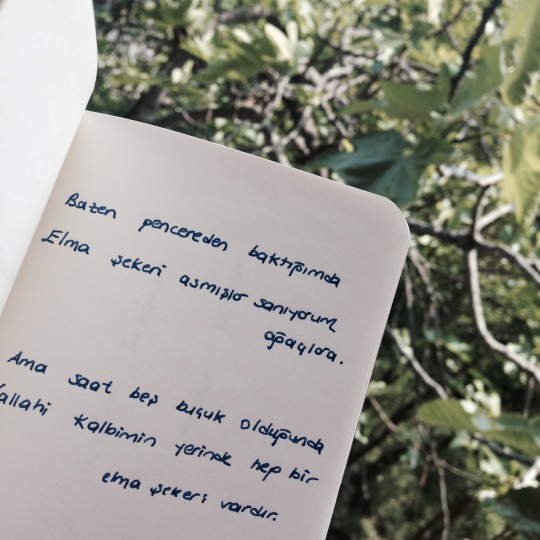 Bazen pencereden baktığımda
Elma şekeri asmışlar sanıyorum
ağaçlara.
Ama saat beş buçuk olduğunda
Vallahi kalbimin yerinde hep bir
elma şekeri vardır.